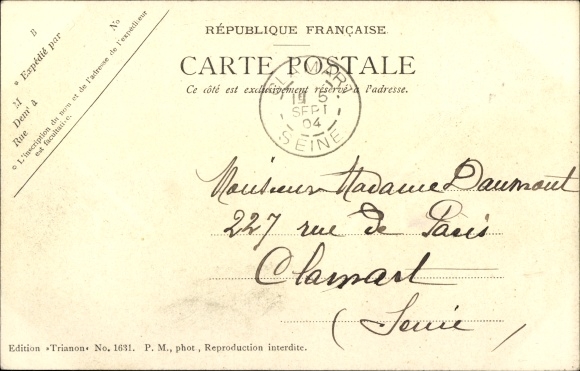 B
No
* Expédié par
M
Demt à
Rue
* L'inscription du nom et de l'adresse de l'expéditeur
est facultative.
RÉPUBLIQUE FRANÇAISE
CARTE POSTALE
Ce côté est exclusivement réservé à l'adresse.
CLAMART
5
SEPT
04
SEINE
Monsieur Madame Daumont
227 rue de Paris
Clamart
(Seine)
Edition «Trianon» No. 1631. P. M., phot, Reproduction interdite.